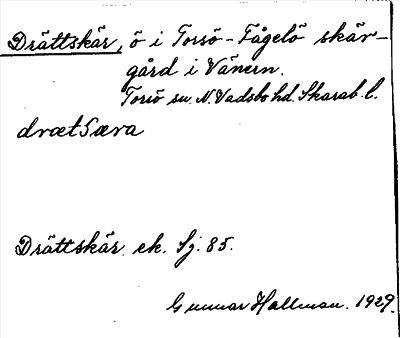 Drättskär, ö i Torsö-Fågelö skär-
gård i Vänern.
Torsö sn. N. Vadsbo hd. Skarab. l.
drætSæra
Drättskär. ek. Sj. 85.
Gunnar Hallman. 1929.